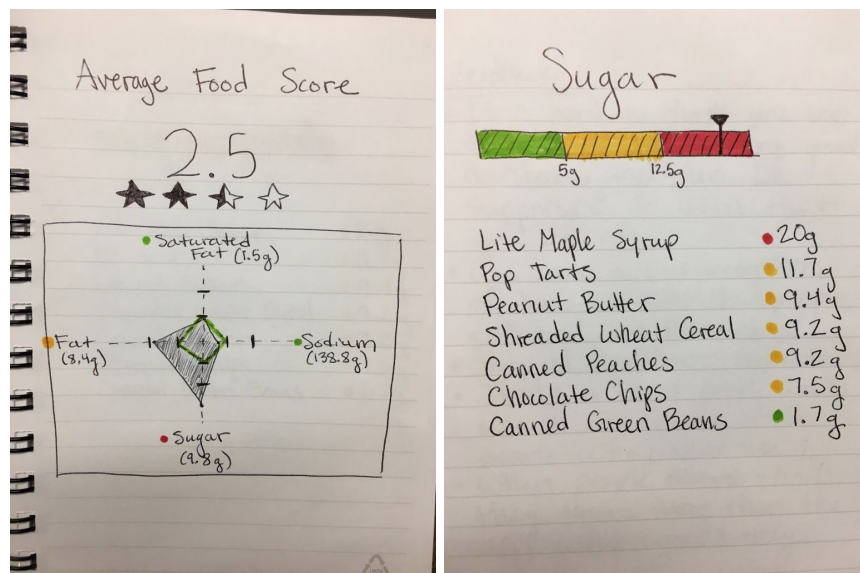 Average Food Score
2.5
Saturated
Fat (1.5g)
Fat
(8.4g)
Sodium
(138.8g)
Sugar
(9.8g)
Sugar
5g
12.5g
Lite Maple Syrup 20g
Pop Tarts 11.7g
Peanut Butter 9.4g
Shreaded Wheat Cereal 9.2g
Canned Peaches 9.2g
Chocolate Chips 7.5g
Canned Green Beans 1.7g